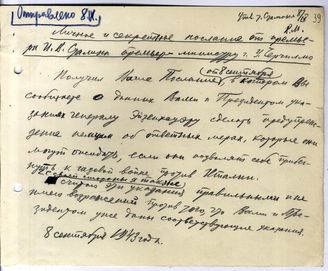 Отправлено 8/IX.
39
Личное и секретное послание от премье-
ра И. В. Сталина премьер-министру г. У. Черчиллю
Получил Ваше Послание от 8 сентября, в котором Вы
сообщаете о данных Вами и Президентом ука-
заниях генералу Эйзенхауэру сделать предупреж-
дение немцам об ответных мерах, которые они
могут ожидать, если они позволят себе прибег-
нуть к газовой войне против Италии.
Я со своей стороны также
считаю эти указания правильными и не
имею возражений против того, что Вами и Пре-
зидентом уже даны соответствующие указания.
8 сентября 1943 года.